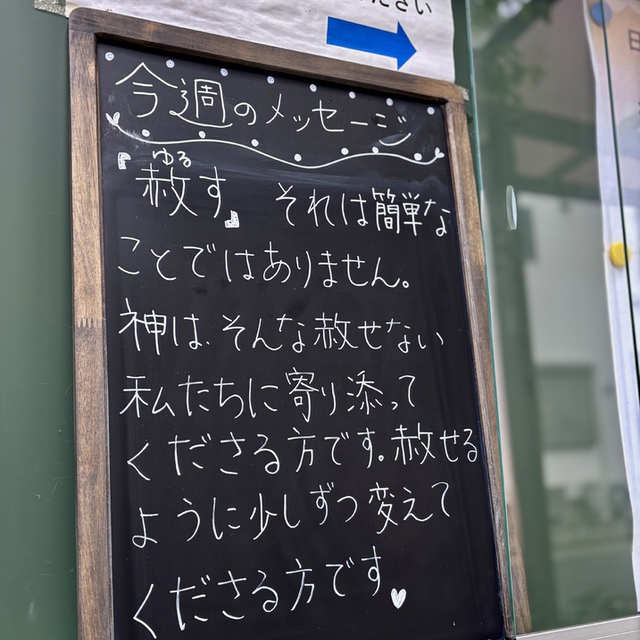 ください
今週のメッセージ
『赦す』 それは簡単な
ことではありません。
神は、そんな赦せない
私たちに寄り添って
くださる方です。赦せる
ように少しずつ変えて
くださる方です♥
日